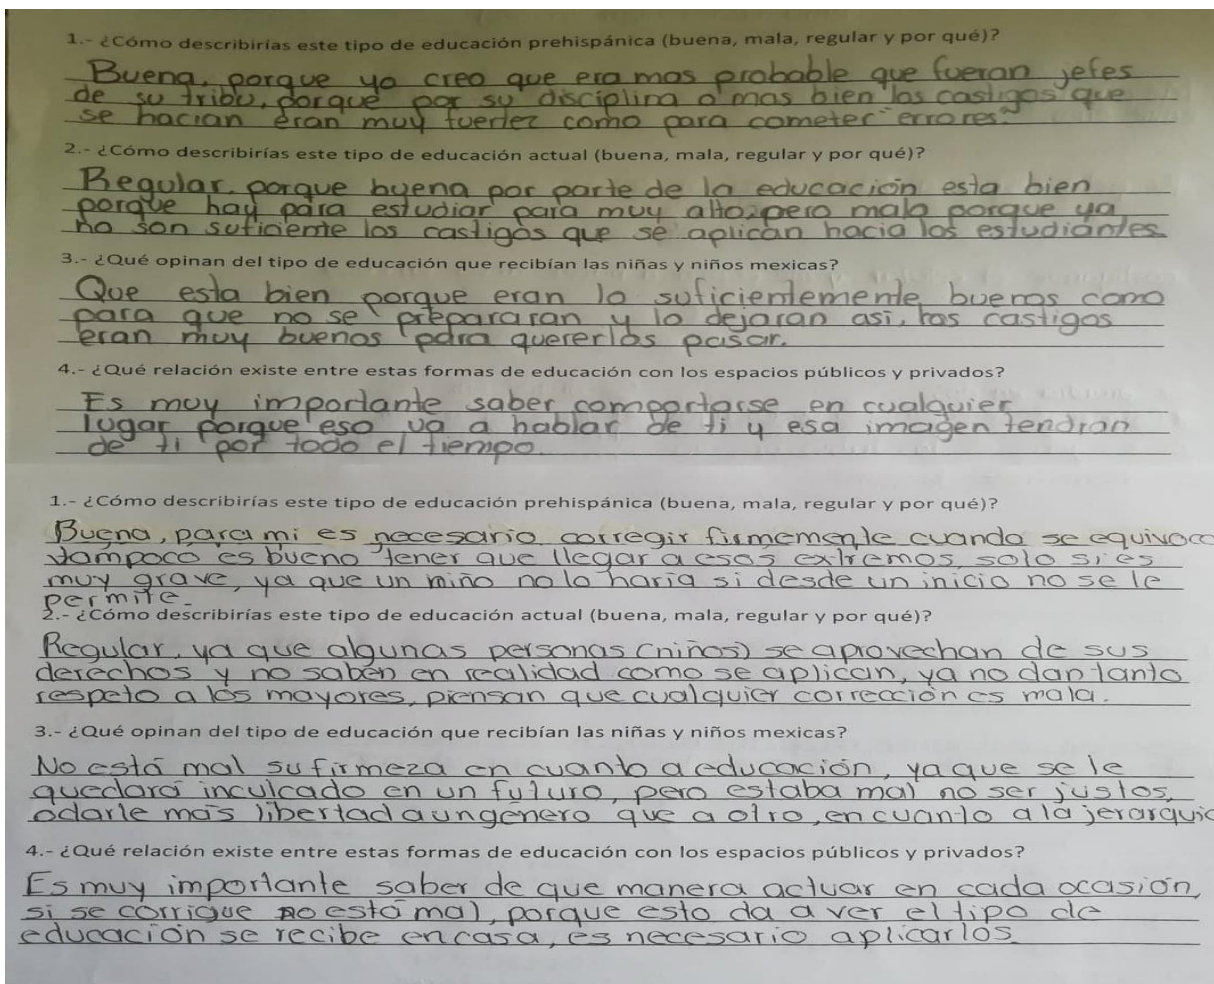 1.- ¿Cómo describirías este tipo de educación prehispánica (buena, mala, regular y por qué)?
Buena, porque yo creo que era mas probable que fueran jefes
de su tribu, porque por su disciplina o mas bien los castigos que
se hacian eran muy fuertez como para cometer "errores"
2.- ¿Cómo describirías este tipo de educación actual (buena, mala, regular y por qué)?
Regular, porque buena por parte de la educación esta bien
porque hay para estudiar para muy alto, pero mala porque ya
no son suficiente los castigos que se aplican hacia los estudiantes.
3.- ¿Qué opinan del tipo de educación que recibían las niñas y niños mexicas?
Que esta bien porque eran lo suficientemente buenos como
para que no se prepararan y lo dejaran asi, los castigos
eran muy buenos para quererlos pasar.
4.- ¿Qué relación existe entre estas formas de educación con los espacios públicos y privados?
Es muy importante saber comportarse en cualquier
lugar porque eso va a hablar de ti y esa imagen tendran
de ti por todo el tiempo.
1.- ¿Cómo describirías este tipo de educación prehispánica (buena, mala, regular y por qué)?
Buena, para mi es necesario corregir firmemente cuando se equivoca
tampoco es bueno tener que llegar a esos extremos, solo si es
muy grave, ya que un niño no lo haria si desde un inicio no se le
permite.
2.- ¿Cómo describirías este tipo de educación actual (buena, mala, regular y por qué)?
Regular, ya que algunas personas (niños) se aprovechan de sus
derechos y no saben en realidad como se aplican, ya no dan tanto
respeto a los mayores, piensan que cualquier corrección es mala.
3.- ¿Qué opinan del tipo de educación que recibían las niñas y niños mexicas?
No está mal su firmeza en cuanto a educación, ya que se le
quedará inculcado en un futuro, pero estaba mal no ser justos,
o darle más libertad a un género que a otro, en cuanto a la jerarquia
4.- ¿Qué relación existe entre estas formas de educación con los espacios públicos y privados?
Es muy importante saber de que manera actuar en cada ocasión,
si se corrigue no está mal, porque esto da a ver el tipo de
educación se recibe en casa, es necesario aplicarlos.